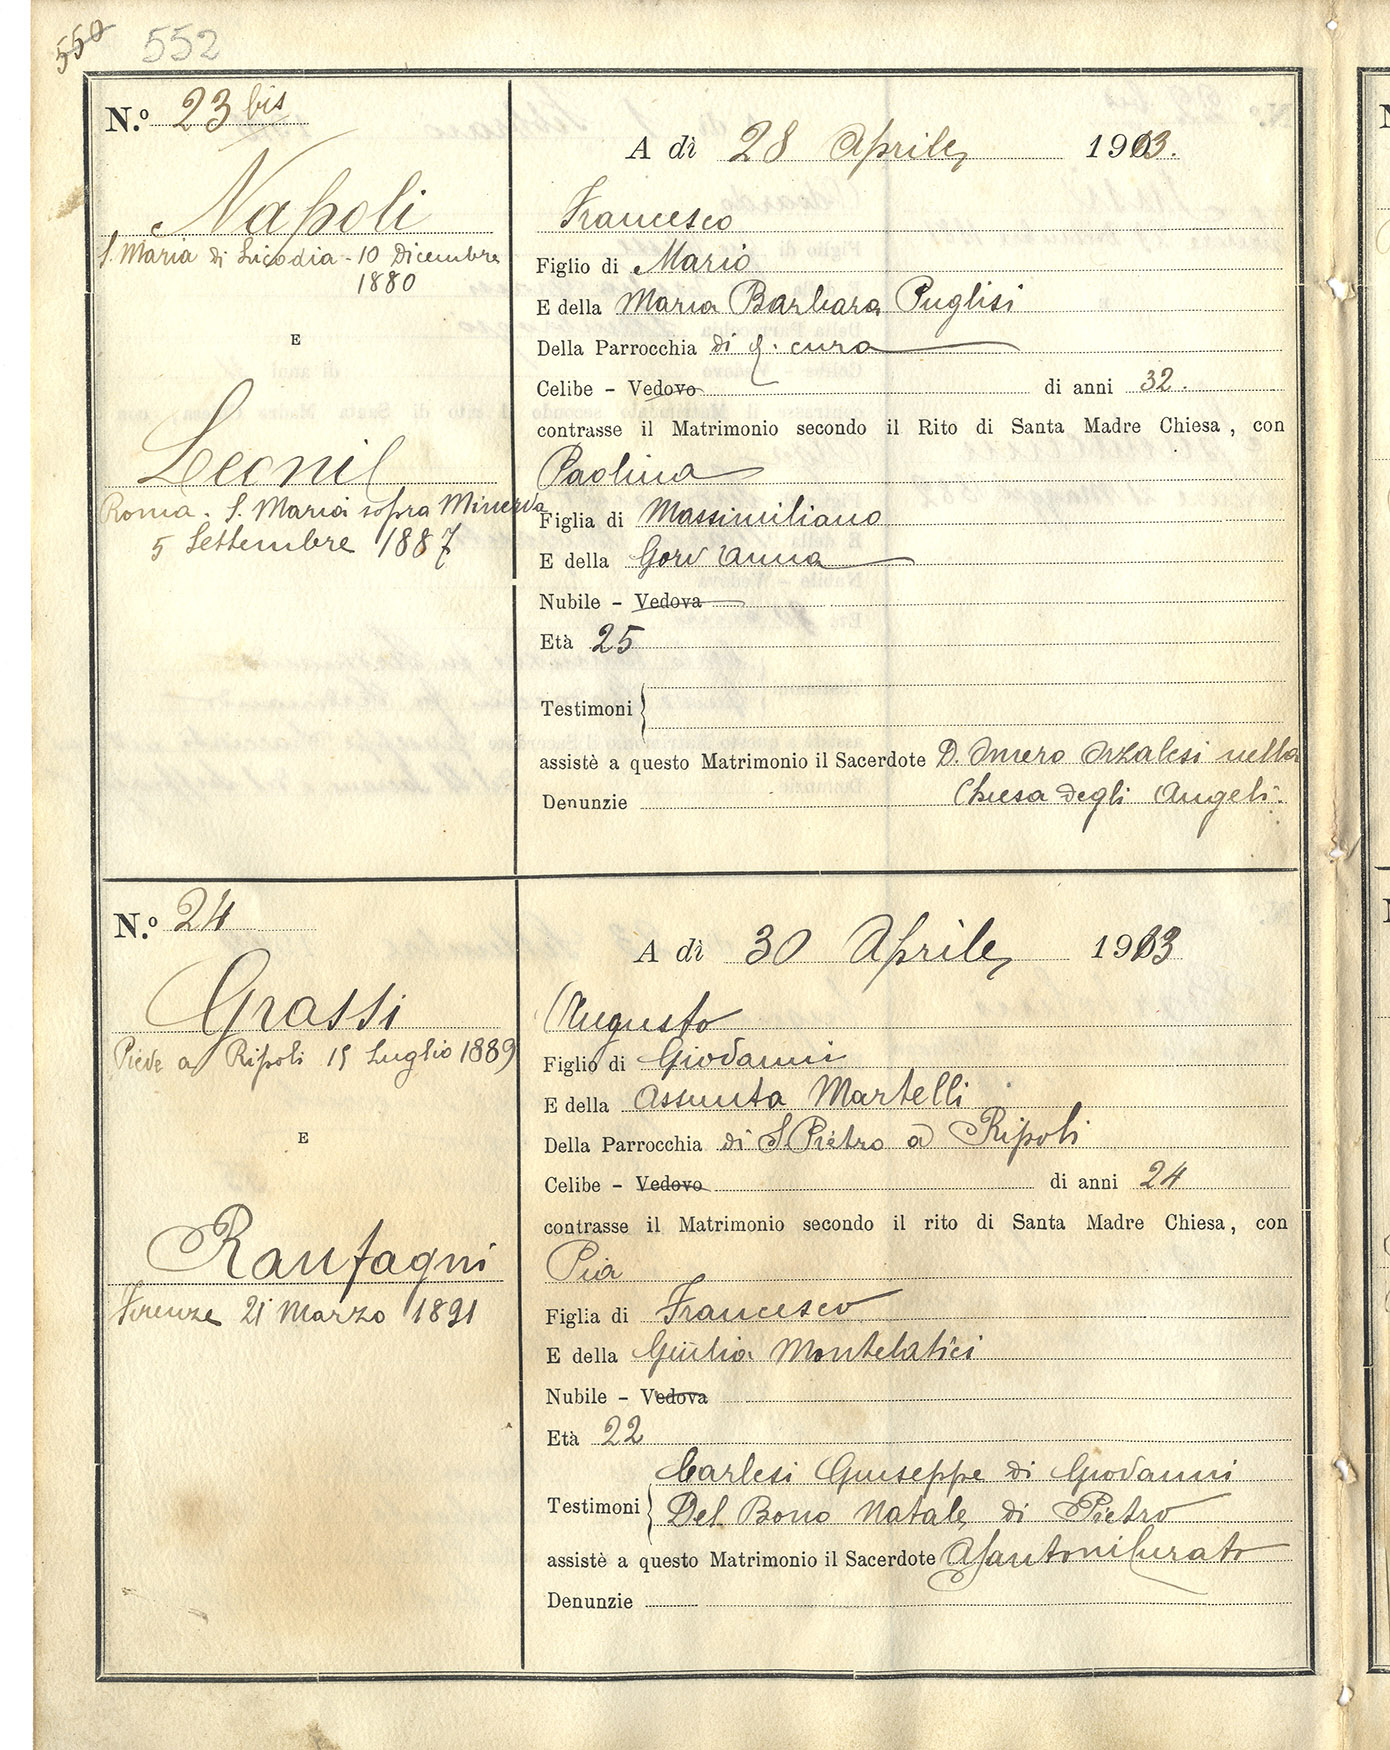 550 552
N.º 23 bis
A dì 28 Aprile 1913.
Napoli
S. Maria di Licodia - 10 Dicembre
1880
E
Leonil
Roma. S. Maria sopra Minerva
5 Settembre 1887
Francesco
Figlio di Mario
E della Maria Barbara Puglisi
Della Parrocchia di q. cura
Celibe - Vedovo di anni 32.
contrasse il Matrimonio secondo il Rito di Santa Madre Chiesa, con
Paolina
Figlia di Massimiliano
E della Gori Anna
Nubile - Vedova
Età 25
Testimoni
assistè a questo Matrimonio il Sacerdote D. nella
Denunzie Chiesa degli Angeli.
N.º 24
A dì 30 Aprile 1913
Grassi
Pieve a Ripoli 15 Luglio 1889
E
Ranfagni
Firenze 21 Marzo 1891
Augusto
Figlio di Giovanni
E della Assunta Martelli
Della Parrocchia di S. Pietro a Ripoli
Celibe - Vedovo di anni 24
contrasse il Matrimonio secondo il rito di Santa Madre Chiesa, con
Pia
Figlia di Francesco
E della Giulia Montelatici
Nubile - Vedova
Età 22
Carlesi Giuseppe di Giovanni
Testimoni Del Bono Natale di Pietro
assistè a questo Matrimonio il Sacerdote ASantoni Curato
Denunzie